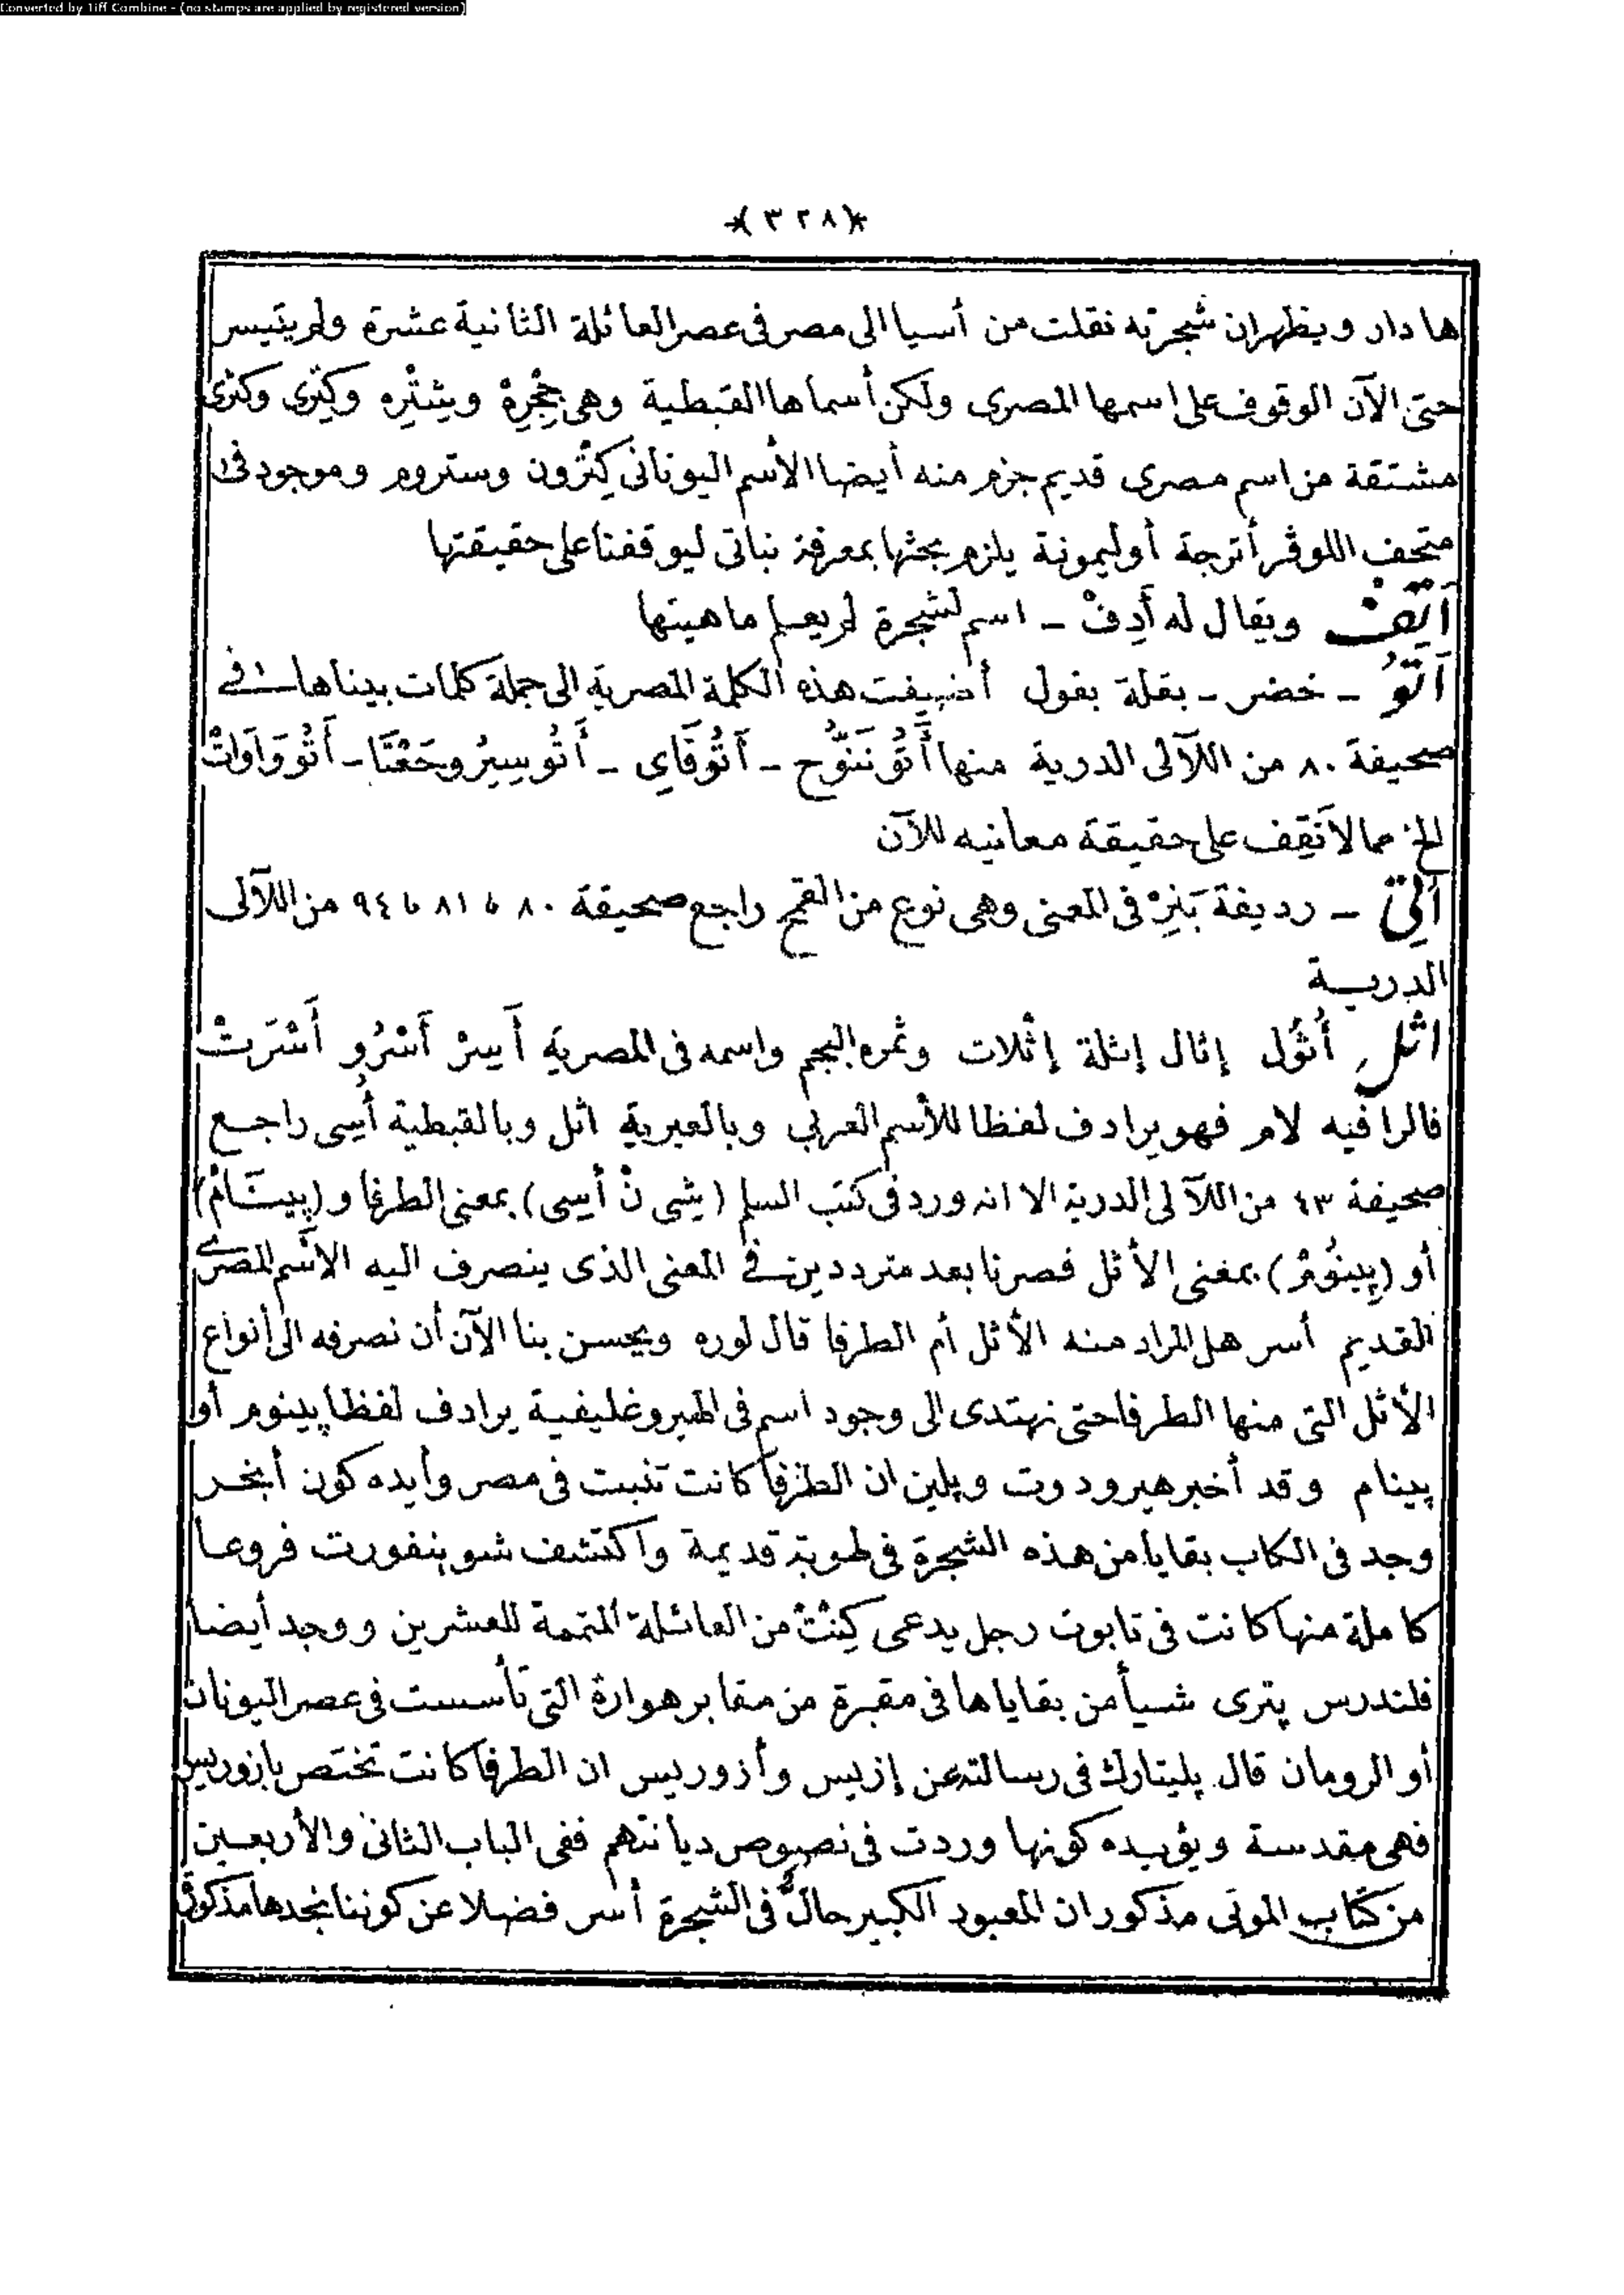 Converted by Tiff Combine - (no stamps are applied by registered version)
*(٣٢٨)*
هادار ويظهران شجرته نقلت من أسيا الى مصر فى عصر العائلة الثانية عشرة ولم يتيسر
حتى الآن الوقوف على اسمها المصرى ولكن أسماها القبطية وهى جِجْرِهْ ويشتْرِه وكِتْرى وكترى
مشتقة من اسم مصرى قديم جزم منه أيضا الأسم اليونانى كِتْرون وستروم وموجود فى
متحف اللوڤر أترجة أوليمونة يلزم بحثها بمعرفة نباتى ليوقفنا على حقيقتها
آتِفْ ويقال له أَدِفْ - اسم لشجرة لم يعلم ماهيتها
آتُو - خضر - بقلة بقول أضيفت هذه الكلمة المصرية الى جملة كلمات بيناها فى
صحيفة ٨٠ من اللآلى الدرية منها أَتُونَنُوح - آتُوقَاى - أَتُوسِيرُوحَعْتَا - أَتُووَاوَاتْ
الخ مما لا نَقِف على حقيقة معانيه للآن
آتِى - رديفة بَنِرْ فى المعنى وهى نوع من القمح راجع صحيفة ٨٠ و ٨١ و ٩٤ من اللآلى
الدرية
اثل أُثُول إثال إثلة إثلات وثمره البجم واسمه فى المصرية آسِرْ أَسْرُو أَسْرَتْ
فالرا فيه لام فهو يرادف لفظا للأسم العربى وبالعبرية اثل وبالقبطية أُسِى راجع
صحيفة ٤٣ من اللآلى الدرية الا انه ورد فى كتب السلم (يشى نْ أسِى) بمعنى الطرفا و (پينَامْ)
أو (پِينُومْ) بمعنى الأثل فصرنا بعد مترددين فى المعنى الذى ينصرف اليه الأسم المصرى
القديم أسر هل المراد منه الأثل أم الطرفا قال لوره ويحسن بنا الآن أن نصرفه الى أنواع
الأثل التى منها الطرفا حتى نهتدى الى وجود اسم فى الهيروغليفية يرادف لفظا پينوم أو
پينام وقد أخبر هيرودوت وپلين ان الطرفا كانت تنبت فى مصر وأيده كون أنجر
وجد فى الكاب بقايا من هذه الشجرة فى طوبة قديمة واكتشف شوينفورت فروعا
كاملة منها كانت فى تابوت رجل يدعى كِنْتْ من العائلة المتممة للعشرين ووجد أيضا
فلندرس پترى شيأ من بقاياها فى مقبرة من مقابر هوارة التى تأسست فى عصر اليونان
أو الرومان قال پليتارك فى رسالته عن إزيس وأزوريس ان الطرفا كانت تختص بازوريس
فهى مقدسة ويؤيده كونها وردت فى نصوص ديانتهم ففى الباب الثانى والأربعين
من كتاب الموتى مذكور ان المعبود الكبير حالّ فى الشجرة أسر فضلا عن كوننا نجدها مذكورة